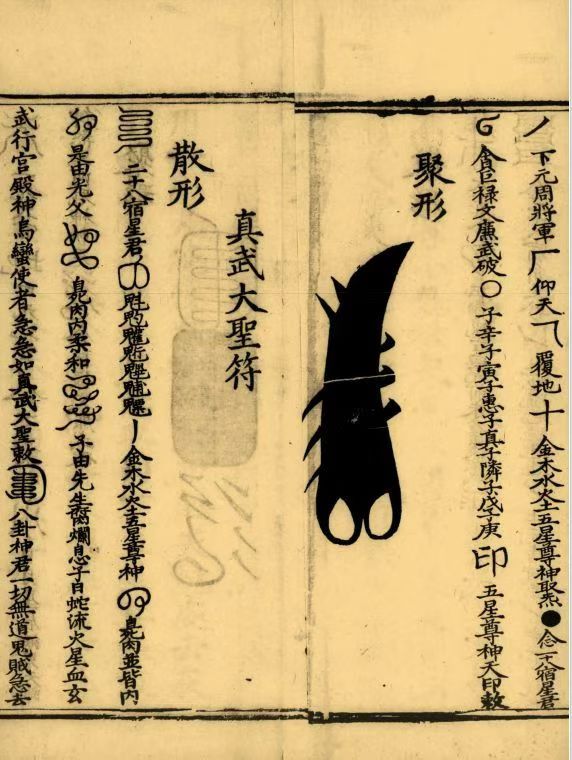 下元周將軍 仰天 覆地 十 金木水火土五星尊神取炁 念二十八宿星君
貪巨祿文廉武破 子辛子寅子惠子真子隣子 子庚 印 五星尊神天印敕
聚形
真武大聖符
散形
二十八宿星君 魁 金木水火土五星尊神 肉並皆内
是由光父 肉内柔和 子由先生 爛息子白蛇流火星血玄
武行宮殿神烏蠻使者急急如真武大聖敕 八卦神君一切無道鬼賊急去